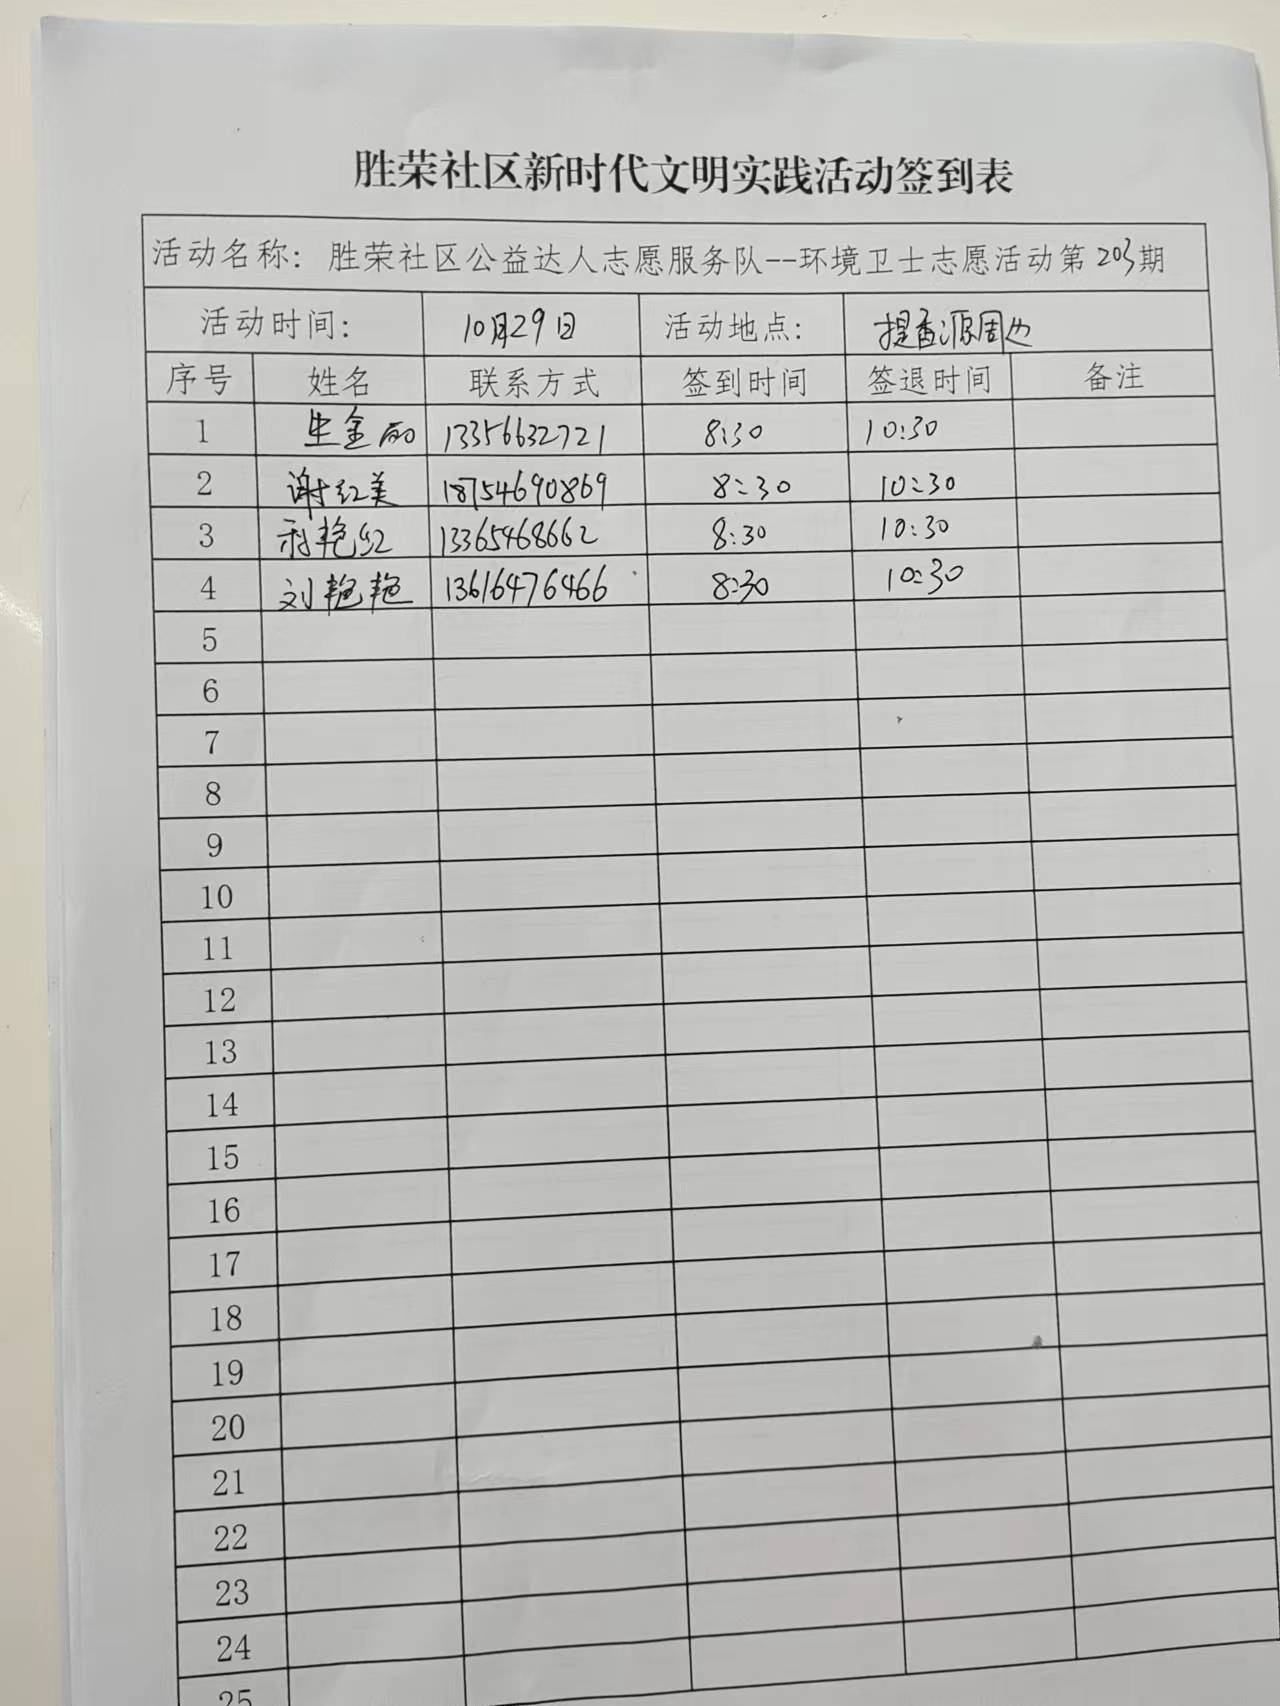 胜荣社区新时代文明实践活动签到表
活动名称：胜荣社区公益达人志愿服务队--环境卫士志愿活动第203期
活动时间： 10月29日 活动地点： 提香源周边
序号 姓名 联系方式 签到时间 签退时间 备注
1 生金丽 13356632721 8:30 10:30
2 谢红美 18754690869 8:30 10:30
3 艳红 13365468662 8:30 10:30
4 刘艳艳 13616476466 8:30 10:30
5
6
7
8
9
10
11
12
13
14
15
16
17
18
19
20
21
22
23
24
25